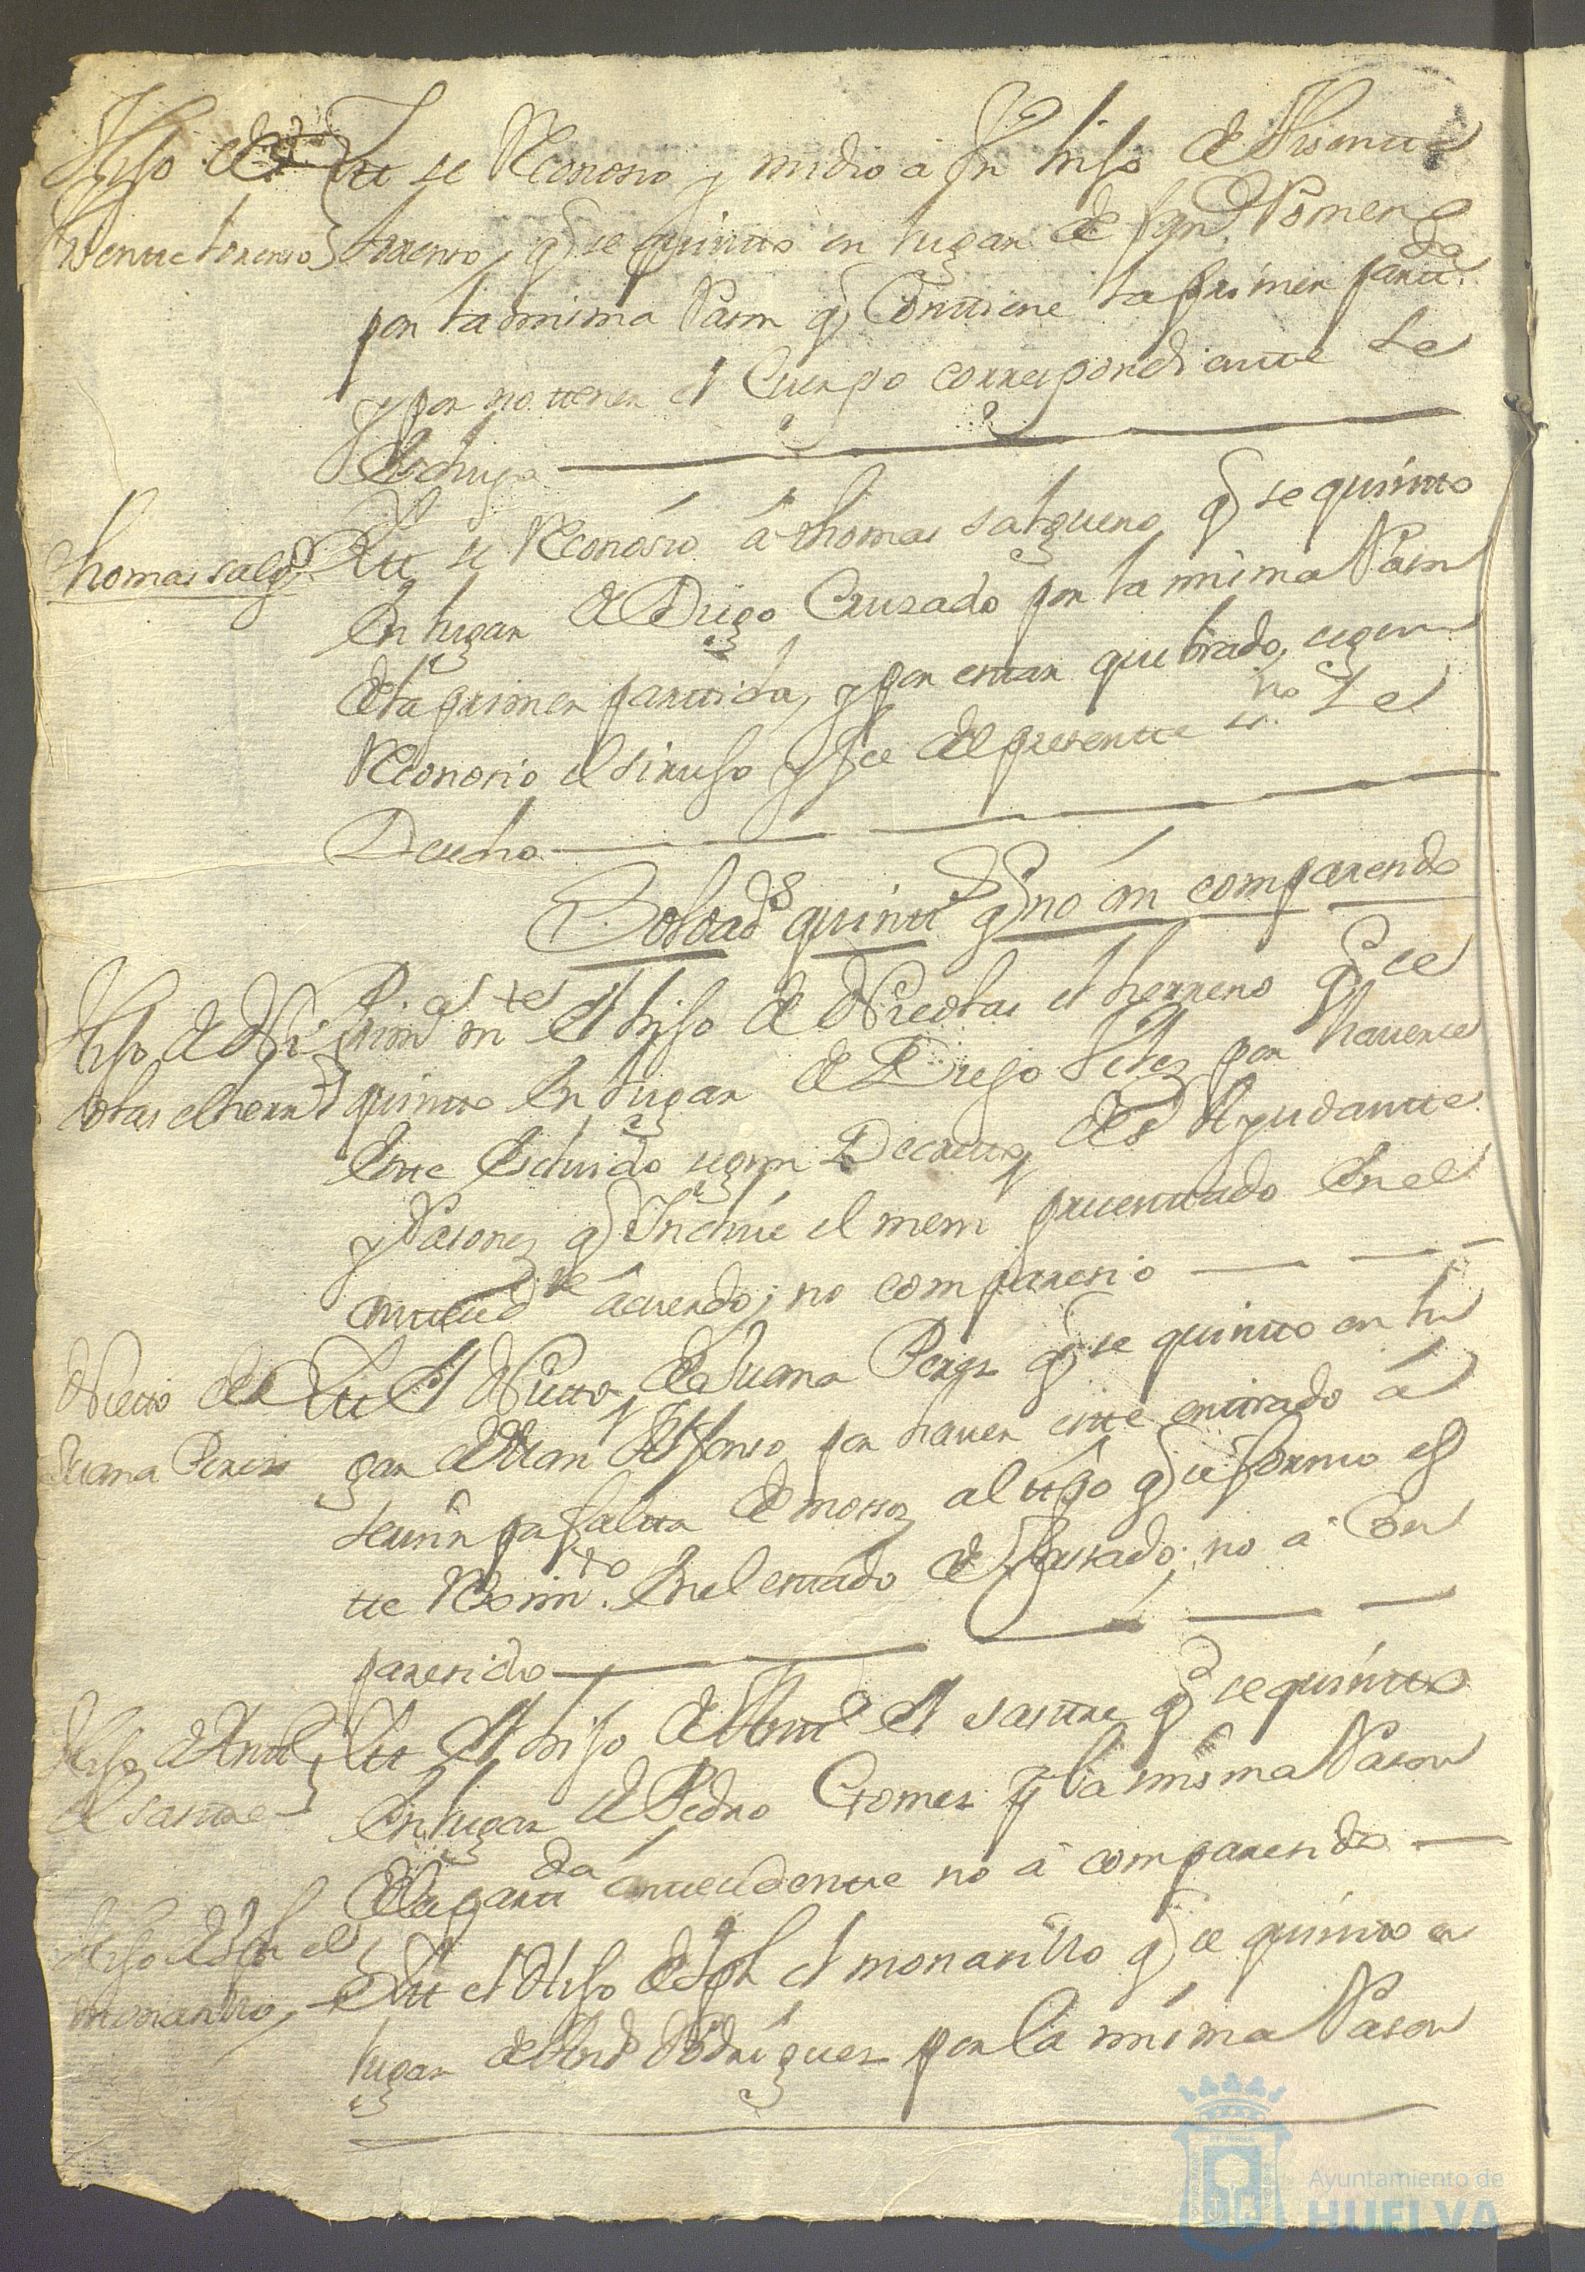 Hijo de
Visente Lorenso
Itt se Reconosio y midio á Jn hijo de Visente
Lorenso, q se quinto en lugar de Romero
por la misma Rason q Contiene la primer partda
y por no tener el Cuerpo correspondiente se
Escluyo
Thomas Salgo
Itt se Reconosió á thomas salguero q se quinto
En lugar de Diego Cruzado por la misma Rason
de la primer partida, y por estar quebrado, segun
Reconosio el siruJo y fee del presente sno se
Desecho
Soldads quints q no án comparendo
Hijo de Nico
las el herro
Primte el hijo de Nicolas el herrero q se
quinto En lugar de Diego por haverse
Este Escluido segun Decretto del Sr Ayudante
y Rasones q Incluie el meml presentado En el
antecedte acuerdo; no comparesio
Nietto de
Juana Peres
Itt El Nietto de Juana Peres q se quinto en lu
gar de Alfonso por haver este entrado á
servir pr falta de mosos al tpo q se formo es
te Reximto En el estado de Casado; no á Con
paresido
Hijo de Antto
el sastre
Itt El hijo de Antto El sastre q se quinto
En lugar de Pedro Gomes y la misma Rason
de la partda antecedente no á comparesido
Hijo de Jph el
monasillo
Itt el Hijo de Jph el monasillo q se quinto en
lugar de Rodrigues por la misma Rason
Ayuntamiento de
HUELVA